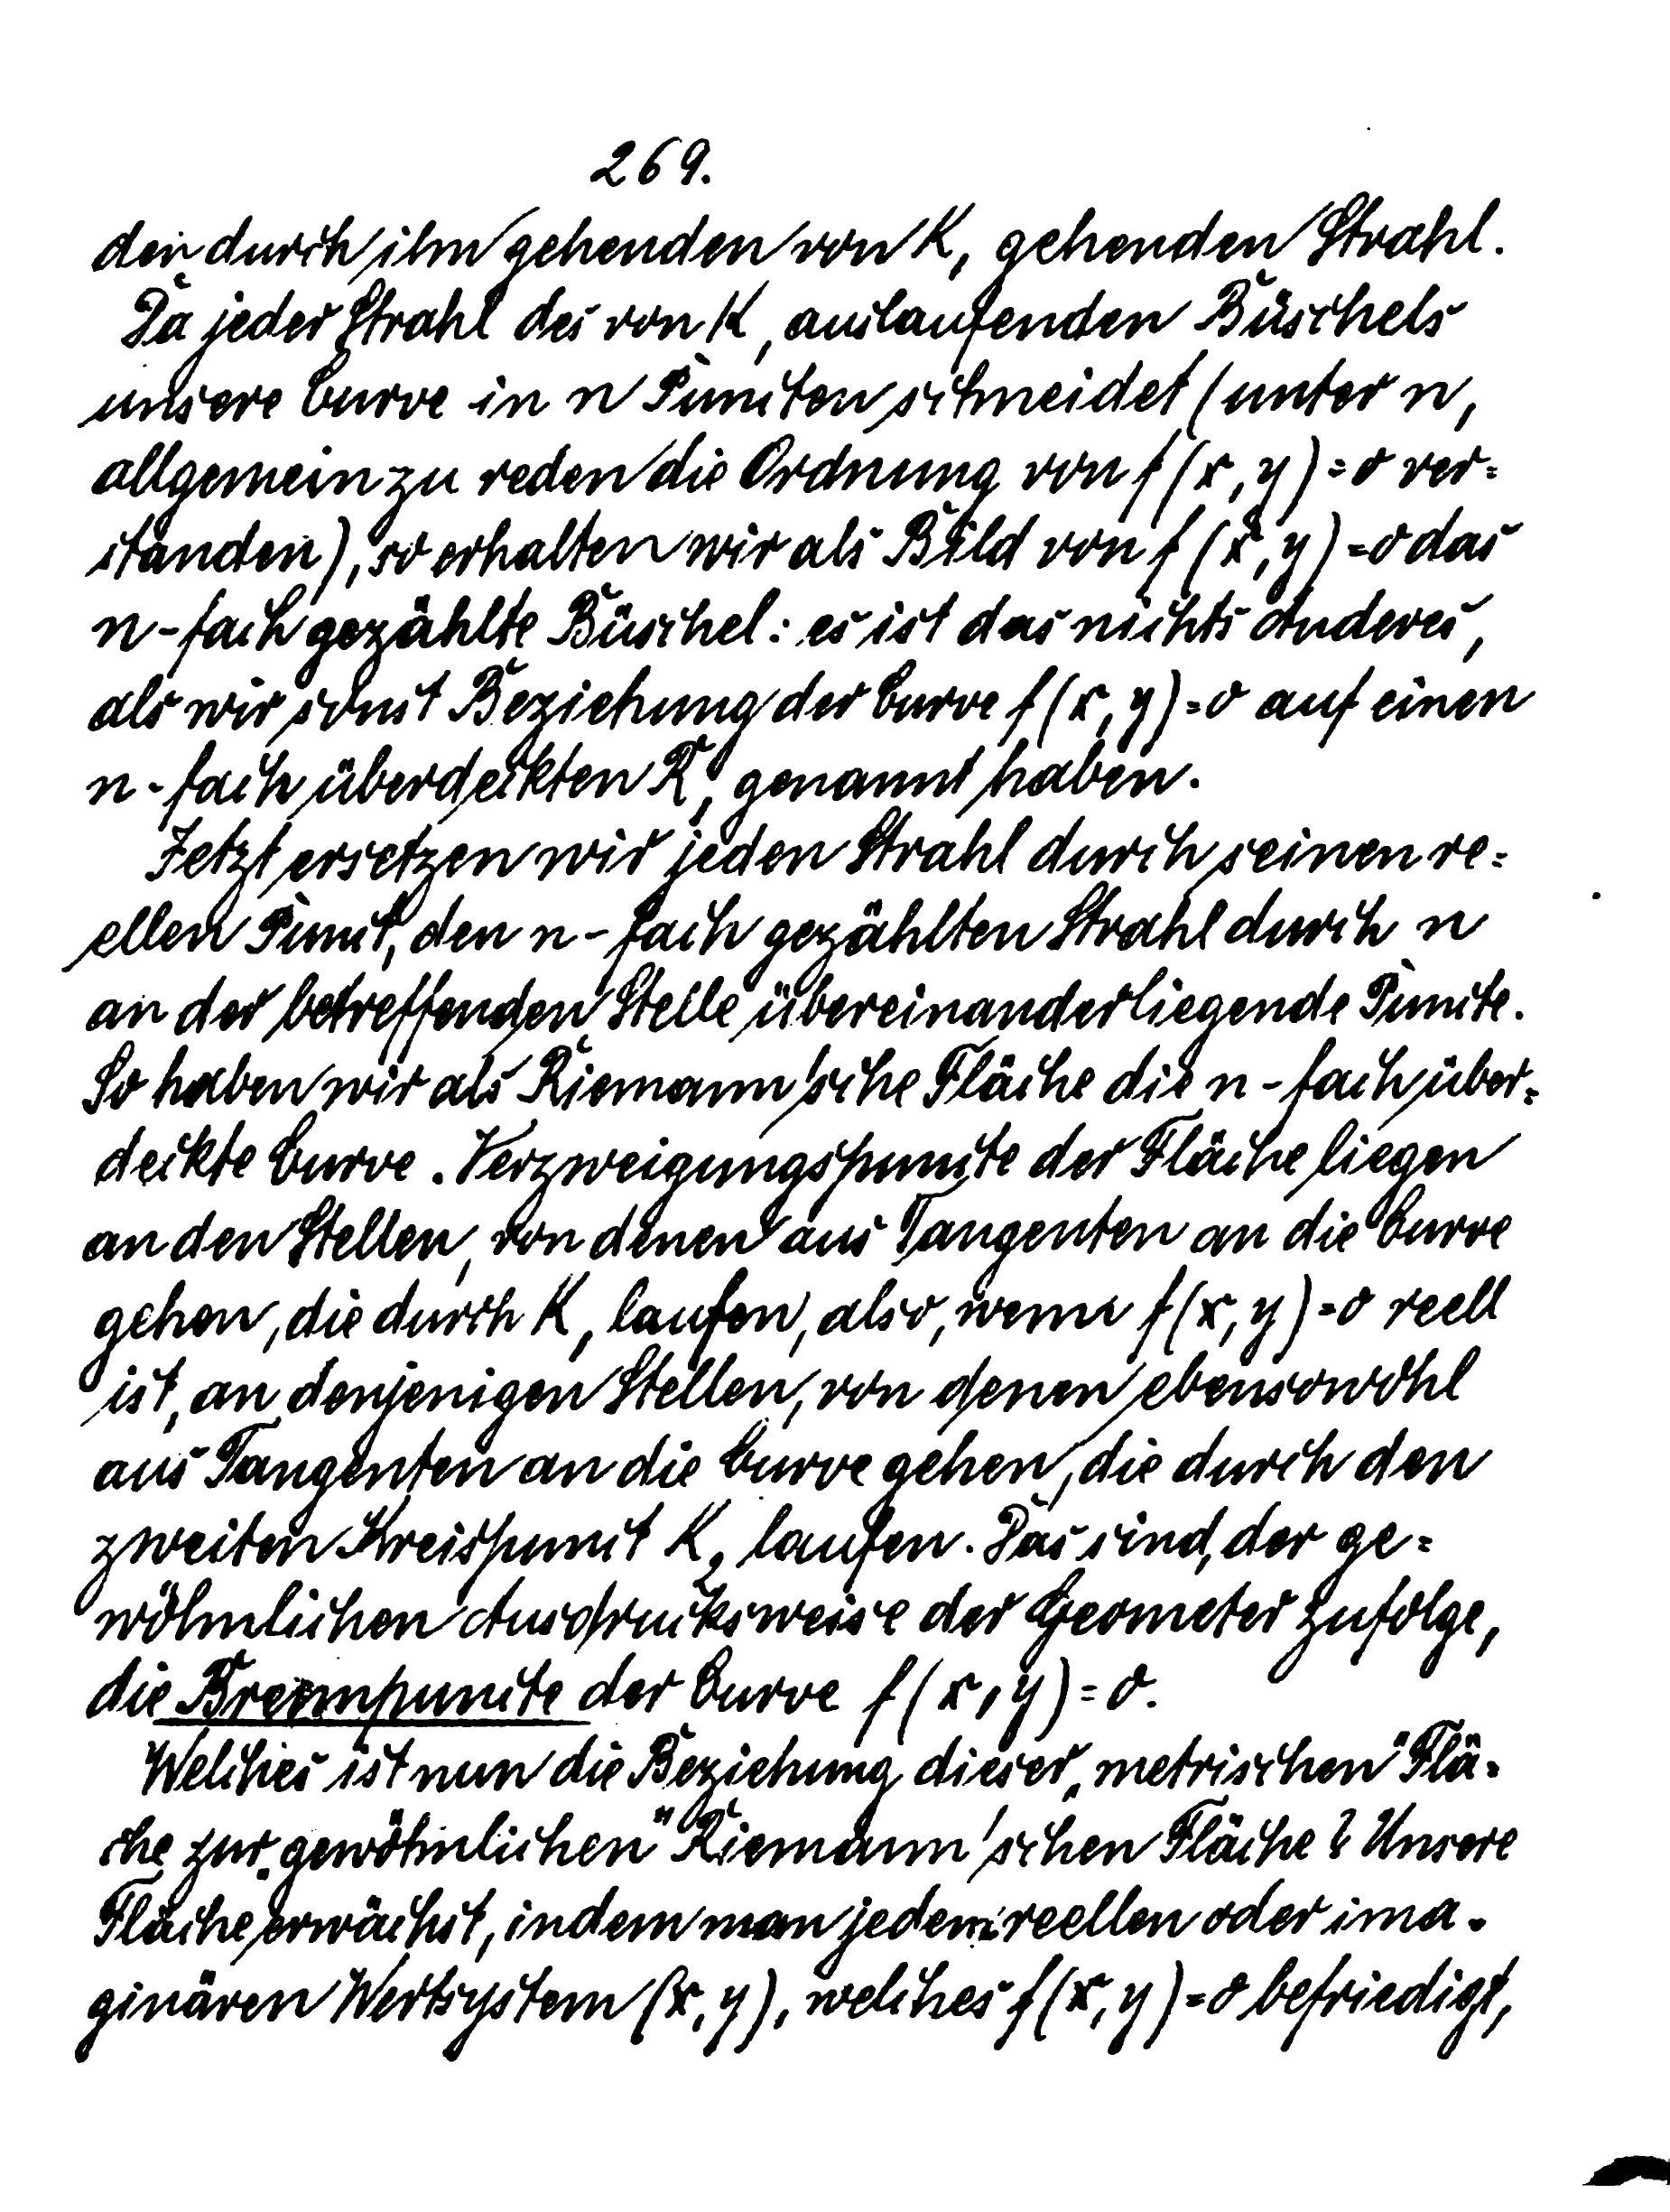 269.
den durch ihn gehenden von K, gehenden Strahl.
Da jeder Strahl des von K, auslaufenden Büschels
unsere Curve in n Puncten schneidet (unter n,
allgemein zu reden die Ordnung von f(x,y)=0 ver=
standen), so erhalten wir als Bild von f(x,y)=0 das
n-fach gezählte Büschel: es ist das nichts Anderes,
als wir sonst Beziehung der Curve f(x,y)=0 auf einen
n-fach überdeckten R, genannt haben.
Jetzt ersetzen wir jeden Strahl durch seinen re=
ellen Punct, den n-fach gezählten Strahl durch n
an der betreffenden Stelle übereinanderliegende Puncte.
So haben wir als Riemann'sche Fläche die n-fach über=
deckte Curve. Verzweigungspuncte der Fläche liegen
an den Stellen, von denen aus Tangenten an die Curve
gehen, die durch K, laufen, also, wenn f(x,y)=0 reell
ist, an denjenigen Stellen, von denen ebensowohl
aus Tangenten an die Curve gehen, die durch den
zweiten Kreispunct K₂ laufen. Das sind, der ge=
wöhnlichen Ausdrucksweise der Geometer zufolge,
die Brennpuncte der Curve f(x,y)=0.
Welches ist nun die Beziehung dieser „metrischen" Flä=
che zur „gewöhnlichen" Riemann'schen Fläche? Unsere
Fläche erwächst, indem man jedem reellen oder ima=
ginären Wertsystem (x,y), welches f(x,y)=0 befriedigt,